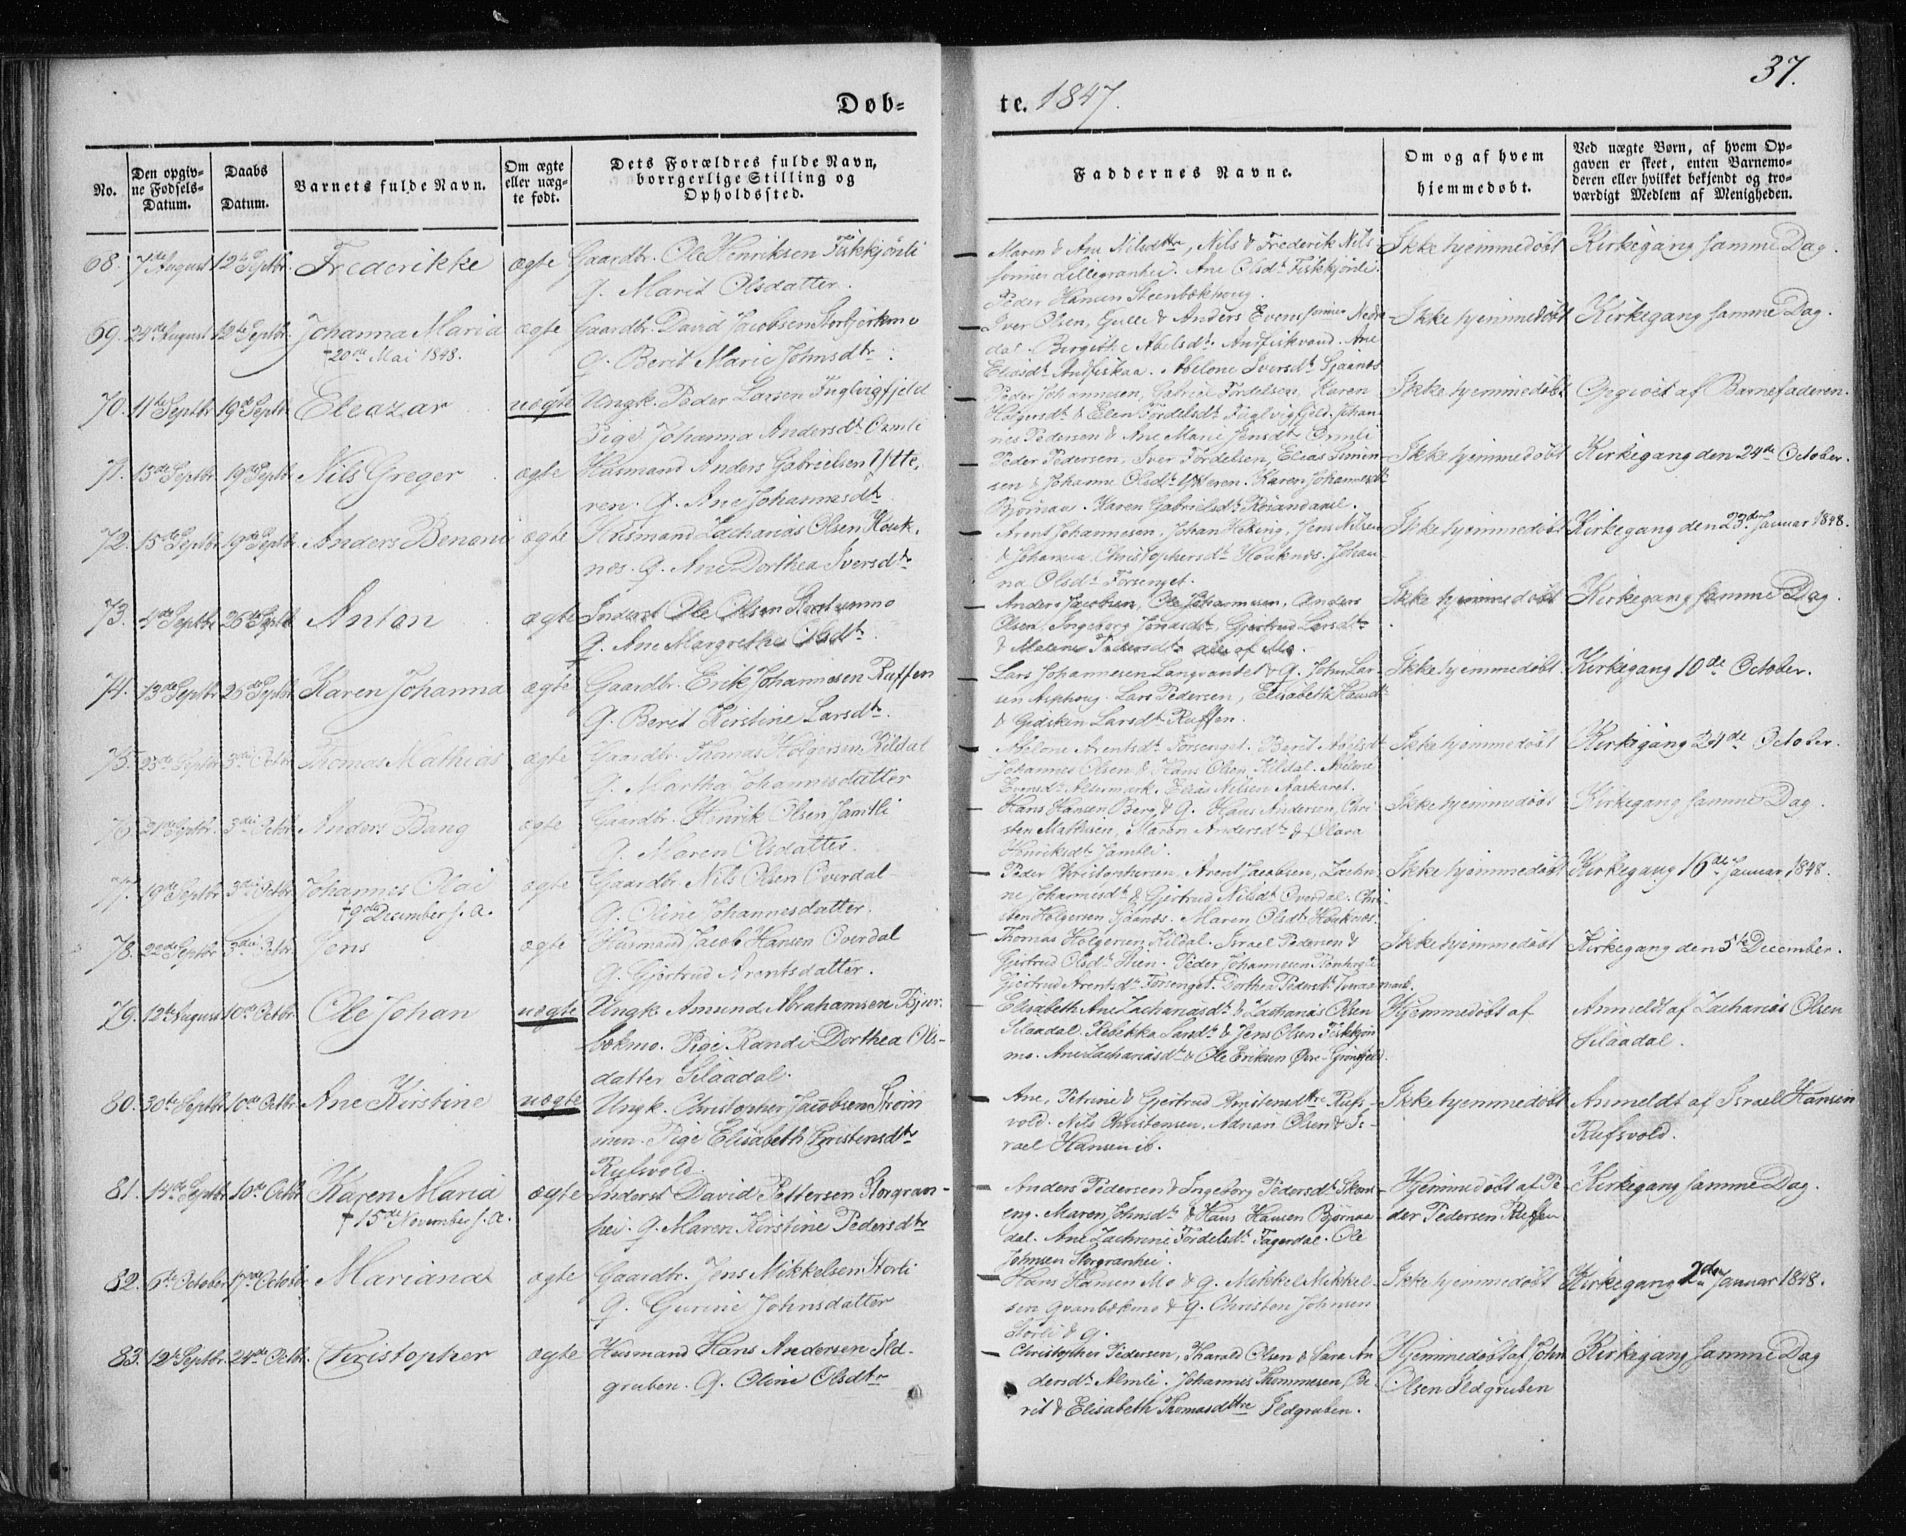 37.
Døb-
te. 1847.
No.
Den opgiv-
ne Fødsels-
Datum.
Daabs
Datum.
Barnets fulde Navn.
Om ægte
eller uæg-
te født.
Dets Forældres fulde Navn,
borrgerlige Stilling og
Opholdssted.
Faddernes Navne.
Om og af hvem
hjemmedøbt.
Ved uægte Børn, af hvem Op-
gaven er skeet, enten Barnemo-
deren eller hvilket bekjendt og tro-
værdigt Medlem af Menigheden.
68. 7de August 12te Septbr. Frederikke ægte Gaardbr. Ole Henriksen Fiskkjønli
Q. Marit Olsdatter.
Maren & Ane Nilsdttr, Nils & Frederik Nils-
sønner Lillegranhei. Ane Olsdtr Fiskkjønli.
Peder Hansen Steenbækhoug.
Ikke hjemmedøbt Kirkegang samme Dag.
69. 24de August 12te Septbr. Johanna Maria ægte Gaardbr. David Jacobsen
†20de Mai 1848.
Q. Berit Marie Johnsdtr.
Iver Olsen, Gulle & Anders Evensønner Nedre-
dal. Birgitte Abelsdtr Andfiskvand. Ane
Eliasdtr Andfiskaa. Abelone Iversdtr
Ikke hjemmedøbt Kirkegang samme Dag.
70. 11te Septbr 19de Septbr. Eleazar uægte Ungk. Peder Larsen Fuglvigfjeld
Pige Johanna Andersdtr Ormli
Peder Johannesen, Gabriel Fordelsen, Karen
Holgersdtr & Elen Fordelsdtr Fuglvigfjeld. Johan-
nes Pedersen & Ane Marie Jensdtr Ormli
Ikke hjemmedøbt Opgivet af Barnefaderen.
71. 13de Septbr. 19de Septbr. Nils Greger ægte Husmand Anders Gabrielsen Ytte-
ren. Q. Ane Johannesdtr.
Peder Pedersen, Iver Fordelsen, Elias Simon-
sen & Johanne Olsdtr Ytteren. Karen Johannesdtr
Bjørnaa. Karen Gabrielsdtr
Ikke hjemmedøbt Kirkegang den 24de October.
72. 15de Septbr 19de Septbr. Anders Benoni ægte Husmand Zacharias Olsen Houk-
nes. Q. Ane Dorthea Iversdtr
Arent Johannesen, Johan Jens Nilsen
& Johanna Christophersdtr Houknes. Johan-
na Olsdtr Forsenget.
Ikke hjemmedøbt Kirkegang den 23de Januar 1848.
73. 4de Septbr 26de Septbr Anton ægte Inderst Ole Olsen
Q. Ane Margrethe Olsdtr.
Anders Jacobsen, Ole Johannesen, Anders
Olsen, Ingeborg Jonasdtr, Gjertrud Larsdtr
& Malene Pedersdtr alle af Mo.
Ikke hjemmedøbt Kirkegang samme Dag.
74. 13de Septbr 26de Septbr. Karen Johanna ægte Gaardbr. Erik Johannesen Ruffen
Q. Berit Kirstine Larsdtr.
Lars Johannesen Langrantet & Q. John Lar-
sen Asphoug. Lars Pedersen, Elisabeth Hansdtr
& Gidsken Larsdtr Ruffen.
Ikke hjemmedøbt Kirkegang 10de October.
75. 23de Septbr 3die Octbr. Thomas Mathias ægte Gaardbr. Thomas Holgersen Kildal
Q. Martha Johannesdatter
Abelone Arentsdtr Forsenget. Berit Abelsdtr
Johannes Olsen & Hans Olsen Kildal. Abelone
Evensdtr Altermark. Elias Nilsen Aaskaret.
Ikke hjemmedøbt Kirkegang 24de October.
76. 21de Septbr. 3die Octbr. Anders Bang ægte Gaardbr. Henrik Olsen Jamtli
Q. Maren Olsdatter.
Hans Hansen Berg & Q. Hans Andersen, Chri-
sten Mathisen, Maren Andersdtr & Olava
Henriksdtr Jamtli.
Ikke hjemmedøbt Kirkegang samme Dag.
77. 19de Septbr. 3die Octbr. Johannes Olai ægte Gaardbr. Nils Olsen Overdal
†9de December s. A.
Q. Oline Johannesdatter.
Peder Christophersen, Arent Jacobsen, Zachri-
ne Johannesdtr & Gjertrud Nilsdtr Overdal. Chri-
sten Holgersen Maren Olsdtr Houknes.
Ikke hjemmedøbt Kirkegang 16de Januar 1848.
78. 22de Septbr 3die Octbr. Jens ægte Husmand Jacob Hansen Overdal
Q. Gjertrud Arentsdatter.
Thomas Holgersen Kildal. Israel Pedersen &
Gjertrud Olsdtr Peder Johannesen
Gjertrud Arentsdtr Forsenget. Dorthea Pedersdtr Tveraamark.
Ikke hjemmedøbt Kirkegang den 5te December.
79. 12te August 10de Octbr. Ole Johan uægte Ungk. Amund Abrahamsen Bjur-
bækmo. Pige Randi Dorthea Ols-
datter Selaadal.
Elisabeth Ane Zachariasdtr & Zacharias Olsen
Selaadal. Rebekka Larsdtr & Jens Olsen Fiskkjøn
mo. Ane Zachariasdtr & Ole Eriksen Øvre-Grønfjeld.
Hjemmedøbt af Anmeldt af Zacharias Olsen
Selaadal.
80. 30te Septbr 10de Octbr. Ane Kirstine uægte Ungk. Christopher Jacobsen Strøm
men. Pige Elisabeth Christensdtr
Rufsvold.
Ane, Petrine & Gjertrud Christensdttre Rufs-
vold. Nils Christensen, Adrian Olsen & Is-
rael Hansen ib.
Ikke hjemmedøbt Anmeldt af Israel Hansen
Rufsvold.
81. 14de Septbr 10de Octbr. Karen Maria ægte Inderst David Pettersen Storgran-
† 15de November s. A.
hei. Q. Maren Kirstine Pedersdtr
Anders Pedersen & Ingeborg Pedersdtr
eng. Maren Johnsdtr & Hans Hansen Bjørnaa-
dal. Ane Zachrine Fordelsdtr Fagerdal. Ole
Johnsen Storgranhei.
Hjemmedøbt af Pe-
der Pedersen Ruffen Kirkegang samme Dag
82. 6te October 17de Octobr. Mariana ægte Gaardbr. Jens Mikkelsen Storli
Q. Gurine Johnsdatter
Hans Hansen Mo & Q. Mikkel Mikkel-
sen Granbækmo & Q. Christen Johnsen
Storli & Q.
Ikke hjemmedøbt Kirkegang 2den Januar 1848.
83. 12te Septbr. 24de Octbr. Christopher ægte Husmand Hans Andersen Ild-
gruben. Q. Oline Olsdtr
Christopher Pedersen, Harald Olsen & Sara An-
dersdtr Almli. Johannes Thommesen, Be-
rit & Elisabeth Thomasdttre Ildgruben.
Hjemmedøbt af John
Olsen Ildgruben Kirkegang samme Dag